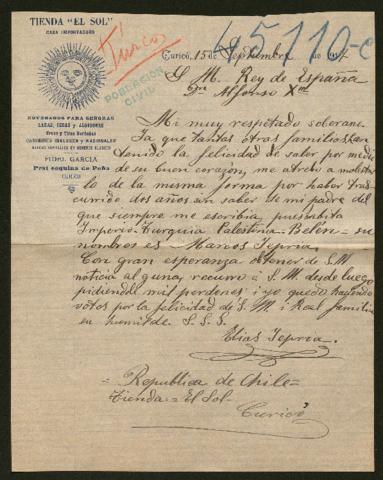 TIENDA "EL SOL"
CASA IMPORTADORA
Turcos
45110-c
POBLACION
CIVIL
Curicó, 15 de Septiembre de 191
NOVEDADES PARA SEÑORAS
LANAS, SEDAS y ALGODONES
PEDRO GARCIA
Prat esquina de Peña
CURICÓ
S. M. Rey de España
Dn Alfonso XIII
Mi muy respetado soberano
Ya que tantas otras familias han
tenido la felicidad de saber por medio
de su buen corazon, me atrevo a molestar
lo de la misma forma por haber tras
currido dos años sin saber de mi padre del
que siempre me escribia, pues habita
Imperio-Turquia Palestina-Belen- su
nombres es Marcos
Con gran esperanza obtener de S. M.
noticia alguna, recurro á S. M. desde luego
pidiendol mil perdones i yo quedo haciendo
votos por la felicidad de S. M. i Real familia
su humilde. S. S. S.
Elias
Republica de Chile=
Tienda= El Sol-
Curicó